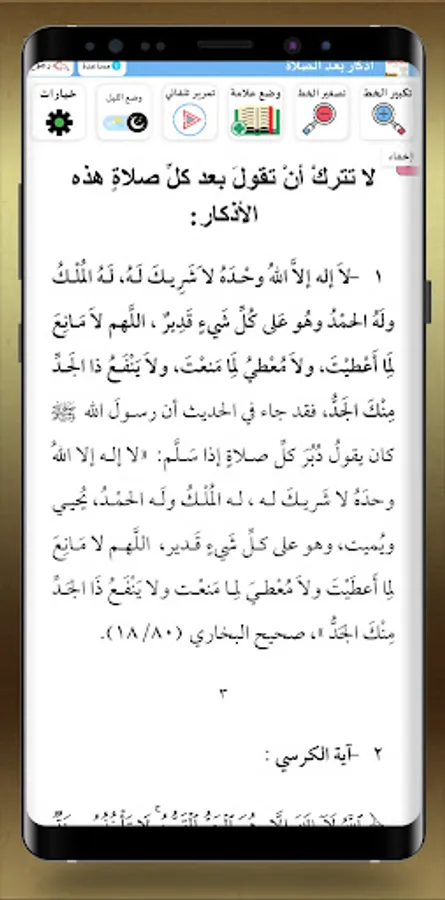 مساعدة
اذكار بعد الصلاة
تكبير الخط
تصغير الخط
وضع علامة
تمرير تلقائي
وضع الليل
خيارات
إخفاء
لا تتركْ أنْ تقولَ بعد كلِّ صلاةٍ هذه
الأذكار:
١ -لاَ إله إلاَّ اللهُ وحْدَهُ لاَ شَرِيكَ لَهُ، لَهُ المُلْكُ
ولَهُ الحمْدُ وهُو عَلى كُلِّ شَيءٍ قَدِيرٌ ، اللَّهم لاَ مَانِعَ
لِمَا أَعْطَيْتَ، ولاَ مُعْطيُ لِمَا مَنعْتَ، ولاَ يَنْفَعُ ذا الجَدِّ
مِنْكَ الجَدُّ، فقد جاء في الحديث أن رسولَ الله ﷺ
كان يقولُ دُبُرَ كلِّ صلاةٍ إذا سَلَّم: «لا إله إلا اللهُ
وحدَهُ لا شَريكَ له ، له المُلْكُ ولَه الحمْدُ، يُحيي
ويُميت، وهو على كلِّ شَيءٍ قَدير، اللَّهم لا مَانِعَ
لِمَا أَعطَيْتَ ولاَ مُعْطيَ لِمَا مَنعْت ولا يَنْفَعُ ذَا الجَدِّ
مِنْكَ الجَدُّ»، صحيح البخاري (١٨/٨٠).
٣
٢ -آية الكرسي :